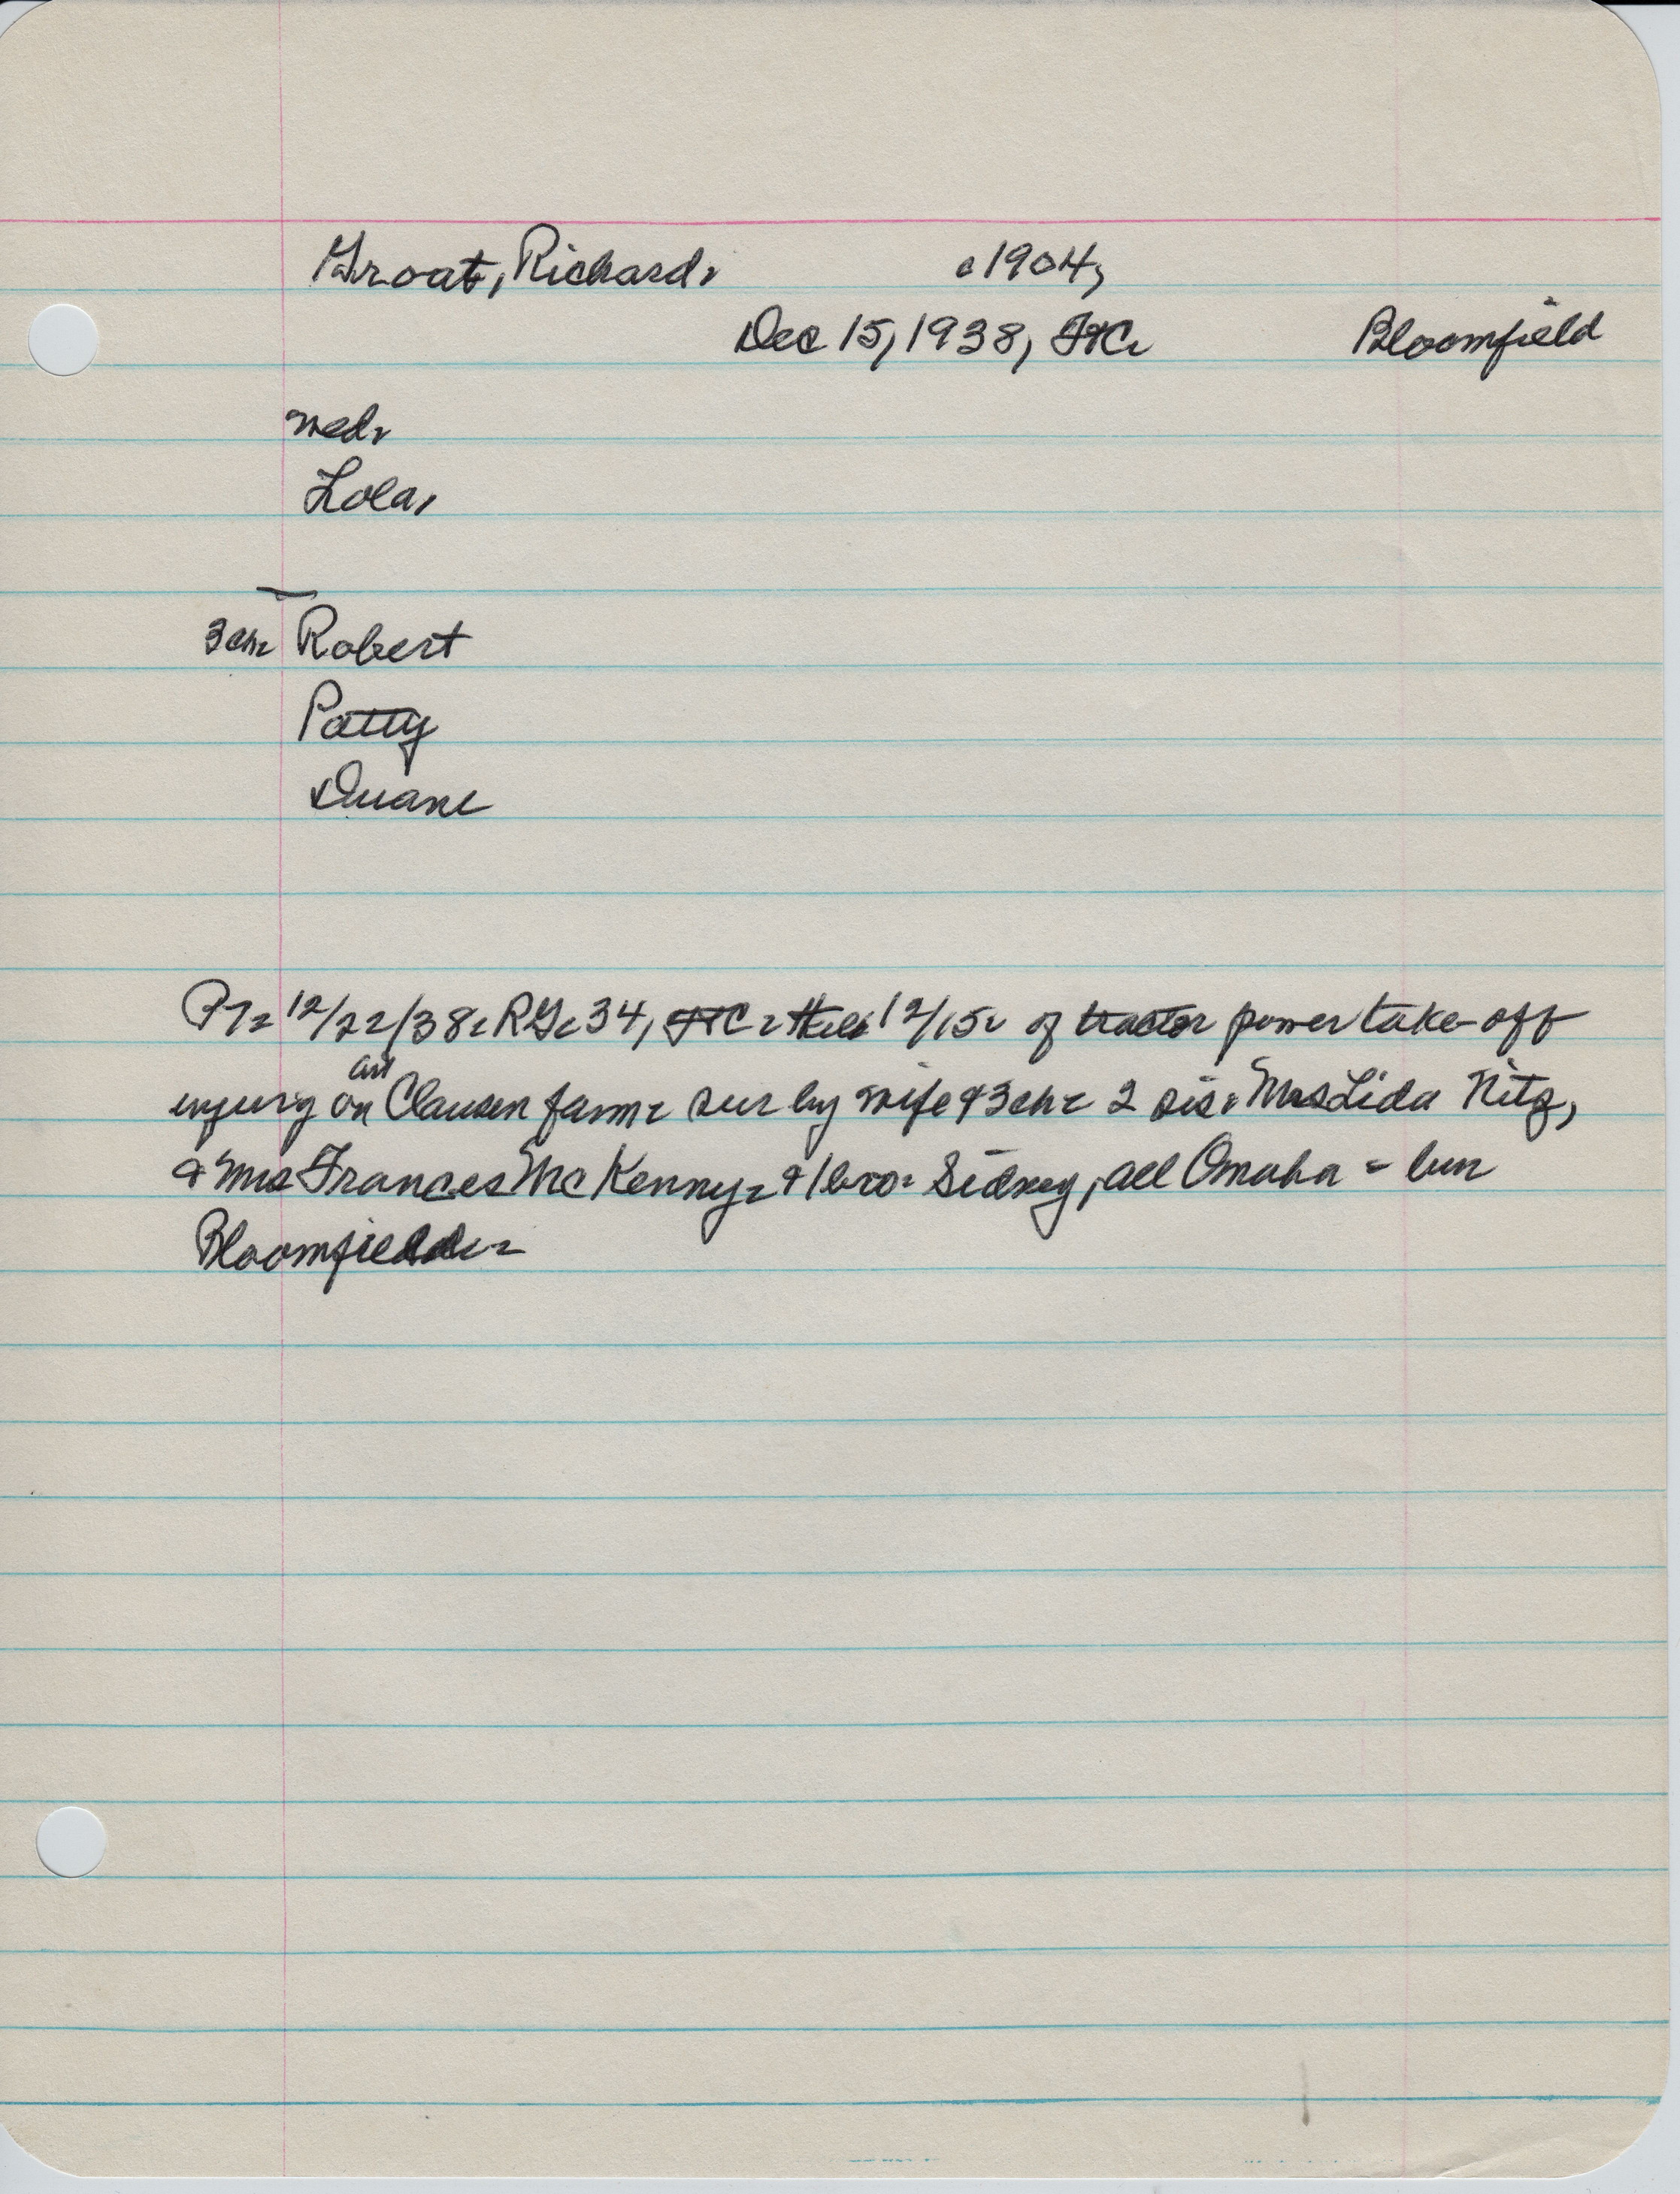 Groat, Richard. c1904,
Dec 15, 1938, FtC. Bloomfield
med.
Lola,
3 ch. Robert
Patty
Duane
12/22/38. RG. 34, FtC. 12/15. of tractor power take-off
injury on Clausen farm. sur by wife & 3 ch. 2 sis. Mrs Lida Nitz,
& Mrs Frances McKenny. & 1 bro. Sidney, all Omaha - bur
Bloomfield.